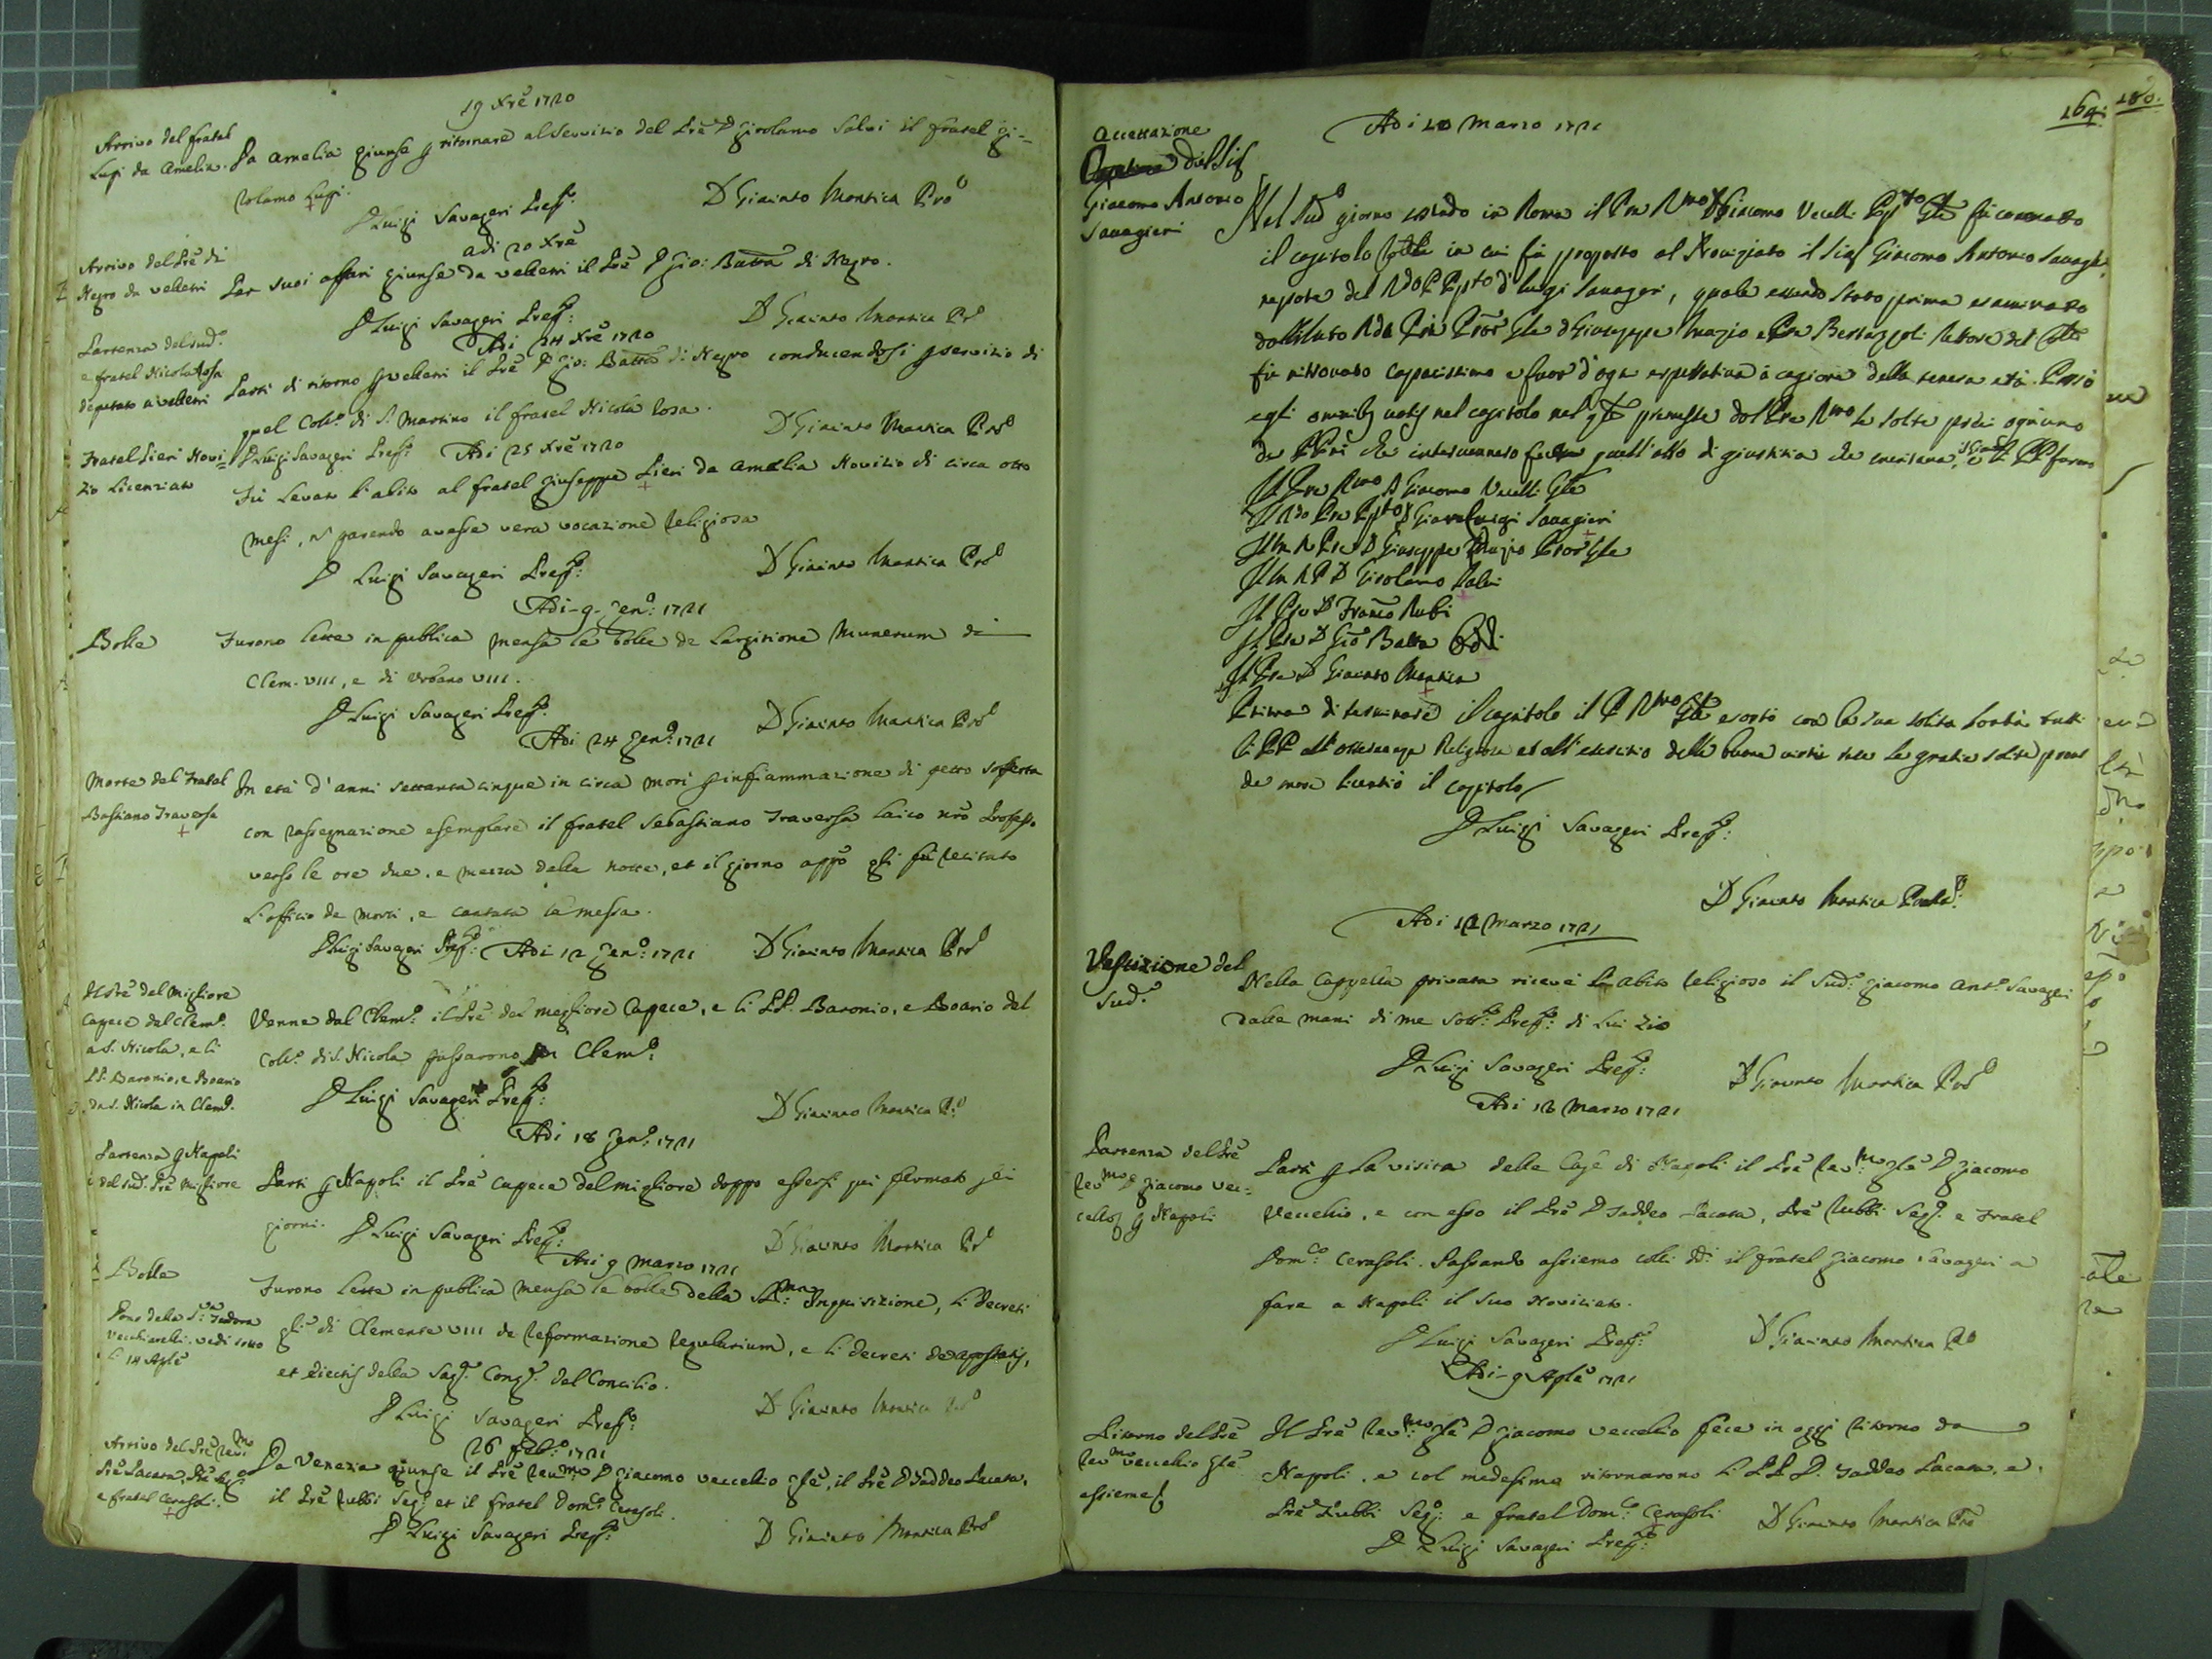 19 Xrê 1720
Arrivo del fratel
Lupi da Amelia.
Da Amelia giunse p ritornare al servizio del Prê D Girolamo Salvi il fratel Gi=
rolamo Lupi.
D Luigi Savageri Prep.to D Giacinto Mantica Pro
adi 20 Xrê
Arrivo del Prê di
Negro da Velletri
Per suoi affari giunse da Velletri il Prê D Gio: Batta di Negro.
D Luigi Savageri Prep.to D Giacinto Mantica Pro
Adi 24 Xrê 1720
Partenza del sud.o
e fratel Nicola Rosa
deputato a Velletri
Partì di ritorno p Velletri il Prê D Gio: Batta di Negro conducendosi p servizio di
quel Coll.o di S. Martino il fratel Nicola Rosa.
D Luigi Savageri Prep.to D Giacinto Mantica Pro
Adi 25 Xrê 1720
Fratel Pieri Novi=
zio Licenziato
Fù Levato l'abito al fratel Giuseppe Pieri da Amelia Novizio di circa otto
mesi, ñ parendo avesse vera vocazione Religiosa
D Luigi Savageri Prep.to D Giacinto Mantica Pro
Adi-9-Gen.o: 1721
Bolle
Furono lette in publica mensa le bolle de Largitione Munerum di
Clem. VIII, e di Urbano VIII.
D Luigi Savageri Prep.to D Giacinto Mantica Pro
Adi 24 Gen.o: 1721
Morte del Fratel
Bastiano Traversa
In età d'anni settanta cinque in circa morì p infiammazione di petto sofferta
con rassegnazione esemplare il fratel Sebastiano Traversa Laico nrõ Professo
verso le ore due, e mezza della notte, et il giorno appõ gli fù recitato
L'officio de morti, e cantata la messa.
D Luigi Savageri Prep.to: D Giacinto Mantica Pro
Adi 12 Gen.o: 1721
Il Prê del Migliore
Capece dal Clem.o
a S. Nicola, e li
PP. Baronio, e Boario
da S. Nicola in Clem.o
Venne dal Clem.o il Prê del Migliore Capece, e li PP. Baronio, e Boario dal
Coll.o di S. Nicola passarono in Clem.o
D Luigi Savageri Prep.to: D Giacinto Mantica Pro
Adi 18 Gen.o: 1721
Partenza p Napoli
del sud.o Prê Migliore
Partì p Napoli il Prê Capece del Migliore doppo essersi qui fermato sei
giorni.
D Luigi Savageri Prep.to: D Giacinto Mantica Pro
Adi 9 Marzo 1721
Bolle
Furono lette in publica mensa le bolle della SS.ma Inquisizione, li Decreti
gli di Clemente VIII de Reformazione Regularium, e li Decreti de Apostatis,
et Eiectis della Sag.a Cong.e del Concilio.
Vecchiarelli. vedi sotto
li 14 Aplê
D Luigi Savageri Prep.to: D Giacinto Mantica Pro
26 Feb.o: 1721
Arrivo del Prê Rev.mo
Prê Lacara,
e fratel Cerasoli.
Da Venezia giunse il Prê Rev.mo D Giacomo Vecchio Glê, il Prê D Taddeo Lacara,
il Prê Rubbi Seg.o et il fratel Dom.co Cerasoli.
D Luigi Savageri Prep.to: D Giacinto Mantica Pro
164. 180.
Adi 10 Marzo 1721
Accettazione
del Sig
Giacomo Antonio
Savagieri
Nel sud.o giorno essendo in Roma il Pre Rmo D Giacomo Vecelli Gle fù convocato
il capitolo in cui fù proposto al Noviziato il Sig Giacomo Antonio Savageri
nepote del Rdo P Ppto D Luigi Savageri, quale essendo stato prima esaminato
dal D Giuseppe Muzio e Pre Bettazzoli Rettore del
fù ritrovato capacissimo e fuor d'ogn espettativa à cagione della tenera età. Passò
egli omnibus votis nel capitolo nel premesse dal Pre Rmo le solite preci ogn'uno
de PPri che intervennero quell'atto di giustizia che meritava, e li PP furono
Il Pre Rmo D Giacomo Vecelli Gle
Il Rdo Pre Ppto D Giovan Luigi Savagieri
Il M R Pre D Giuseppe Muzio
Il M R P D Girolamo Salvi
Il Pre D Franco Rubi
Il Pre D Gio Batta
Il Pre D Giacinto Mantica
Prima di terminare il capitolo il P Rmo Gle esortò con la sua solita bontà tutti
li PP all'osservanza Religiosa et all'esercitio delle buone virtù
de more licentiò il capitolo
D Luigi Savageri Prep.to:
D Giacinto Mantica
Adi 12 Marzo 1721
Vestizione del
Sud.o
Nella Cappella privata ricevè l'abito religioso il Sud.o Giacomo Ant.o Savageri
dalle mani di me sott.o Prep.to: di Lui Zio
D Luigi Savageri Prep.to: D Giacinto Mantica Pro
Adi 18 Marzo 1721
Partenza del Prê
Rev.mo D Giacomo Vec=
p Napoli
Partì p La visita delle Case di Napoli il Prê Rev.mo Glê D Giacomo
Vecchio, e con esso il Prê D Taddeo Lacara, Prê Rubbi Seg.o e Fratel
Dom.co: Cerasoli. Passando assieme colli il fratel Giacomo Savageri a
fare a Napoli il suo Noviziato.
D Luigi Savageri Prep.to: D Giacinto Mantica Pro
Adi-9 Aplê 1721
Ritorno del Prê
Rev.mo Vecchio Glê
assieme
Il Prê Rev.mo Glê D Giacomo Vecchio fece in oggi ritorno da
Napoli, e col medesimo ritornarono li PP D. Taddeo Lacara, e
Prê Rubbi Seg.o: e fratel Dom.co: Cerasoli
D Luigi Savageri Prep.to: D Giacinto Mantica Pro